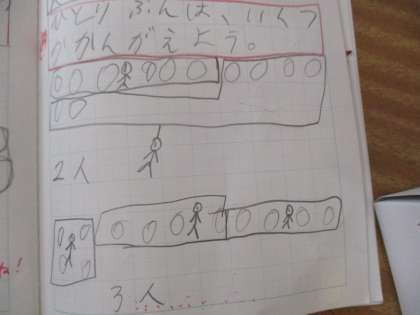 ひとりぶんは、いくつ
かかんがえよう。
2人
3人